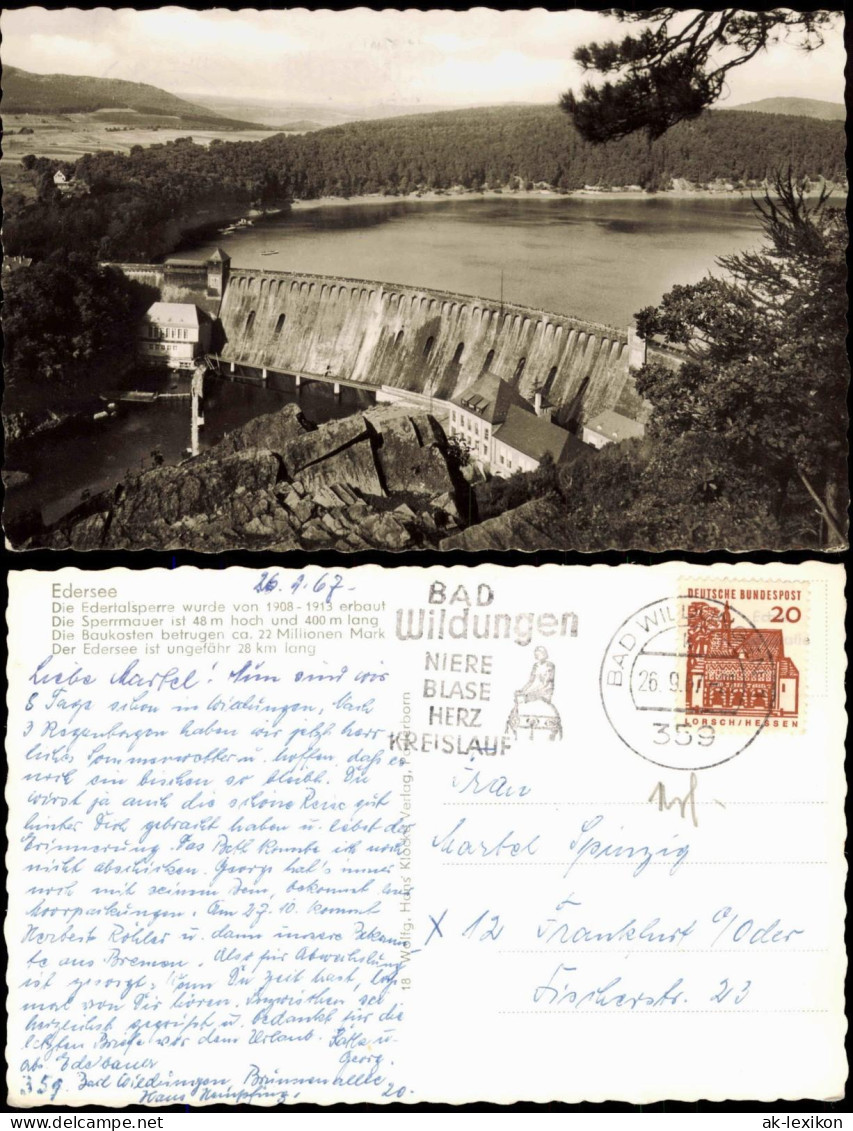 Edersee
Die Edertalsperre wurde von 1908-1913 erbaut
Die Sperrmauer ist 48 m hoch und 400 m lang
Die Baukosten betrugen ca. 22 Millionen Mark
Der Edersee ist ungefähr 28 km lang
26.9.67.
Liebe Martel! Nun sind wir
8 Tage schon in Wildungen. Nach
3 Regentagen haben wir jetzt herr
liches Sommerwetter u. hoffen, daß es
noch ein bischen so bleibt. Du
wirst ja auch die schöne Reise gut
hinter Dich gebracht haben u. lebst der
Erinnerung. Das Bett konnte ich noch
nicht abschicken. George hat's immer
noch mit seinem Bein, bekommt
Moorpackungen. Am 27.10. kommt
Herbert Röhler u. dann unsere Bekann
te aus Bremen. Also für Abwechslung
ist gesorgt. Wenn Du Zeit hast, laß
mal von Dir hören. Inzwischen sei
herzlichst gegrüßt u. bedankt für die
letzten Briefe vor dem Urlaub. Käthe u.
Georg.
359 Bad Wildungen, Brunnenallee
20.
18 Wolfg. Hans Klocke Verlag, Paderborn
BAD
Wildungen
NIERE
BLASE
HERZ
KREISLAUF
BAD WILDUNGEN
26.9.67
359
DEUTSCHE BUNDESPOST
20
LORSCH/HESSEN
Frau
Martel Spinzig
X 12 Frankfurt a/Oder
Fischerstr. 23
ak-lexikon